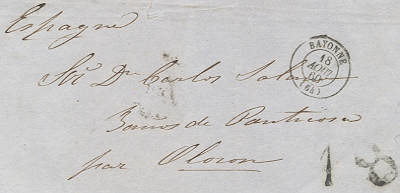 Espagne
BAYONNE
18
AOUT
60
(64)
Sr Dn Carlos
Banos de Panticosa
par Oloron
18